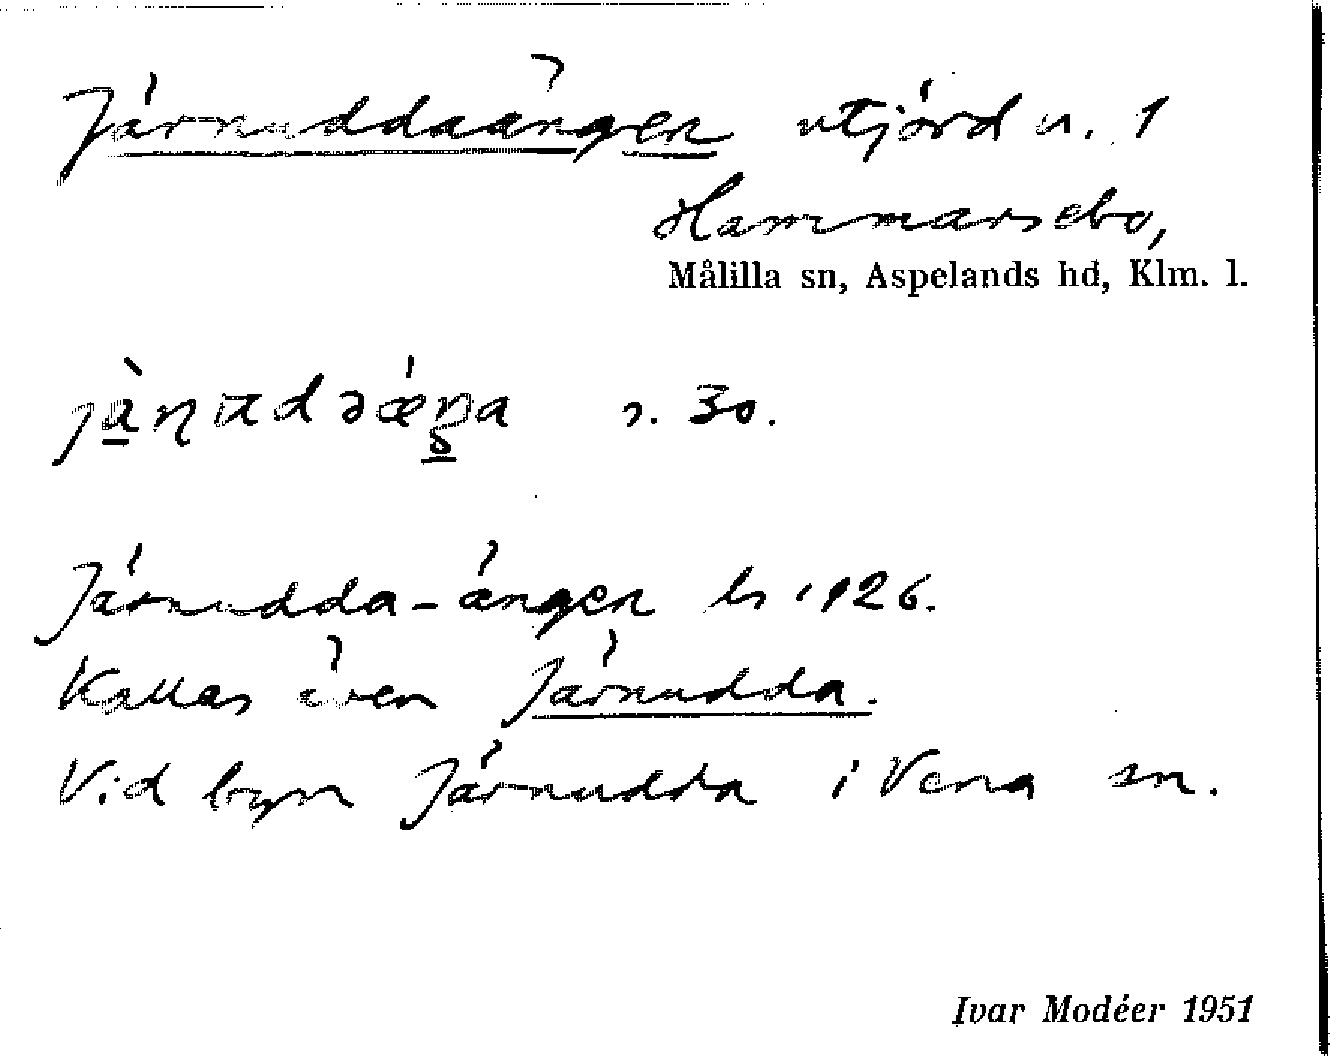 Järnuddaängen utjord u. 1
Hammarsebo,
Målilla sn, Aspelands hd, Klm. l.
s. 30.
Järnudda-ängen ls 1926.
Kallas även Järnudda.
Vid byn Järnudda i Vena sn.
Ivar Modéer 1951